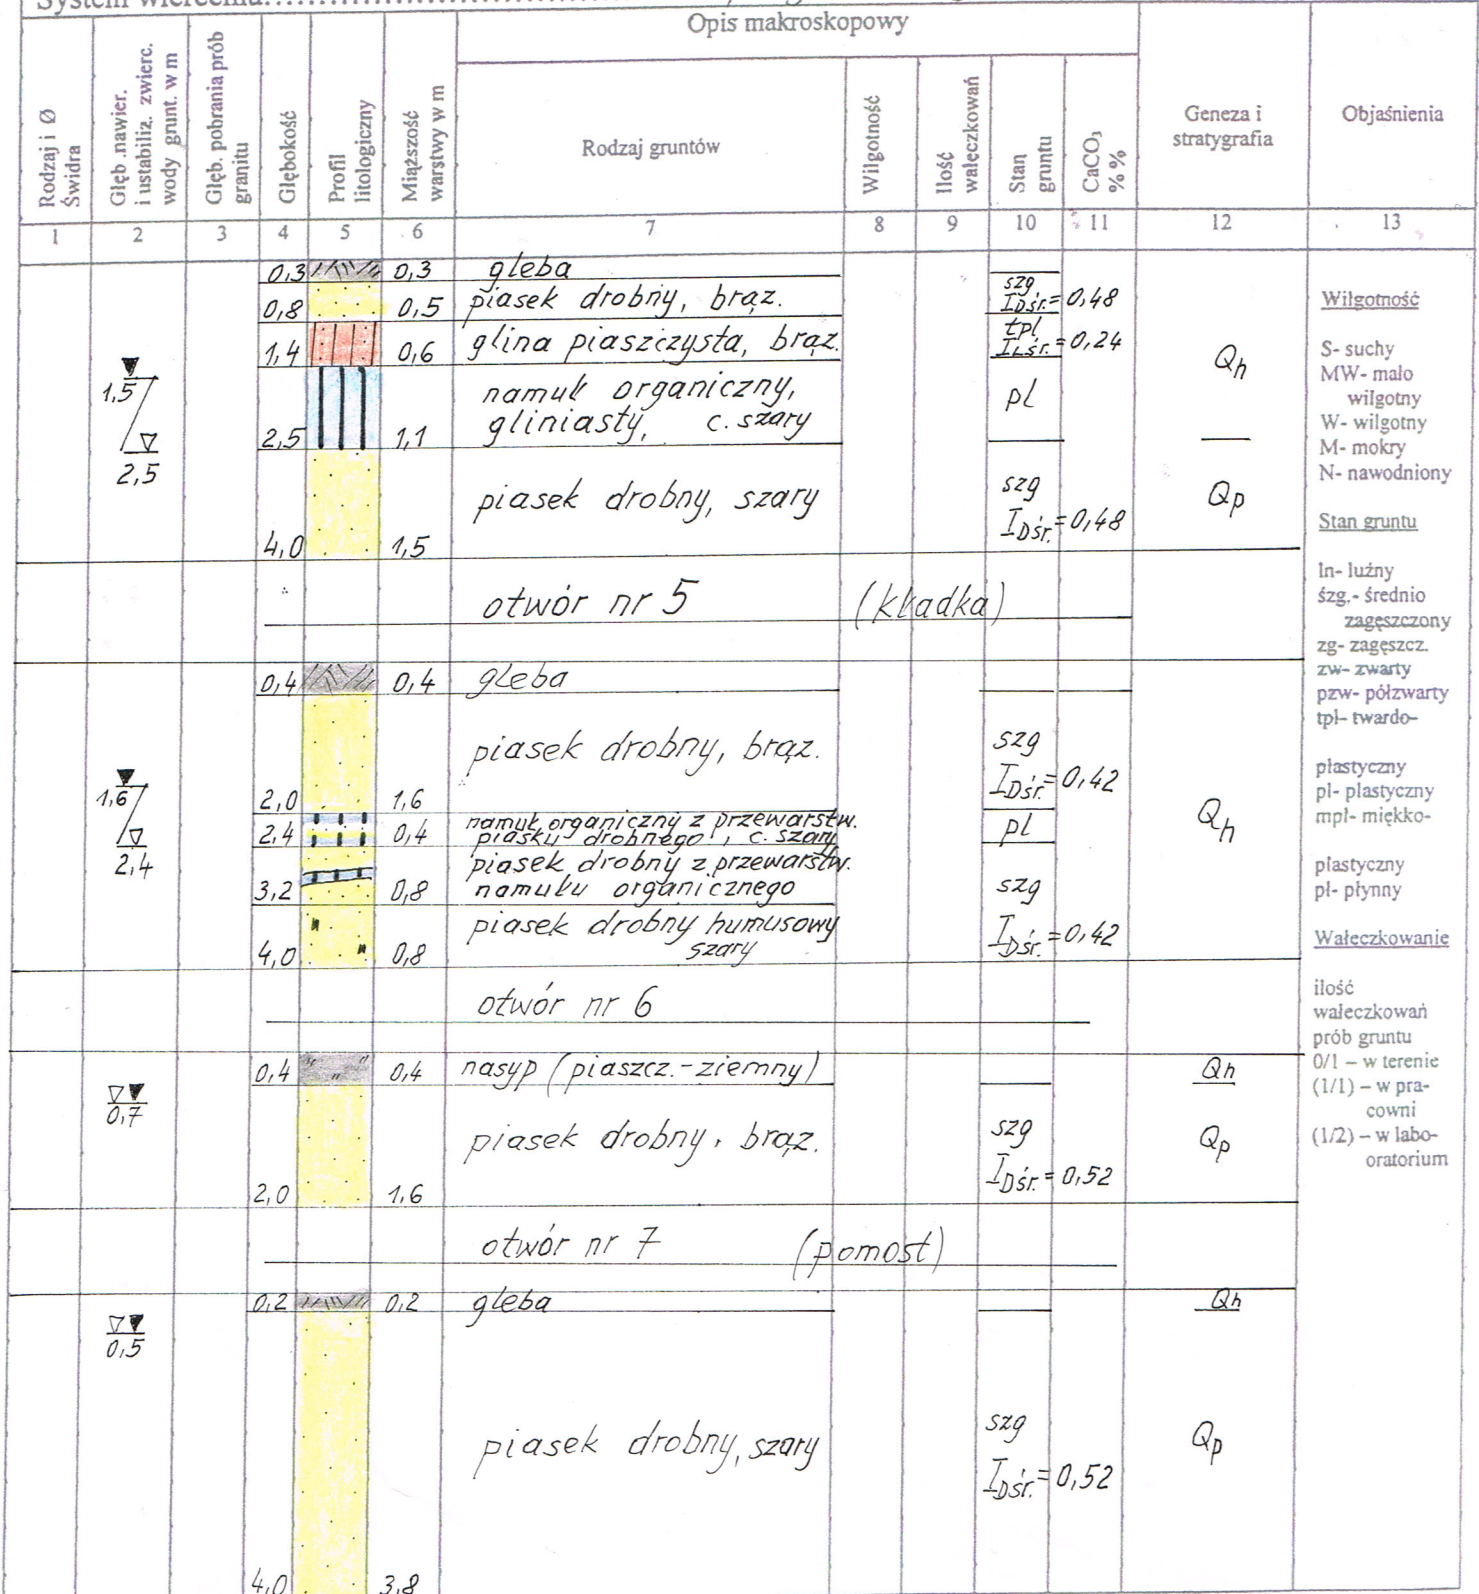 System wiercenia
Opis makroskopowy
Rodzaj i Ø
Świdra
Głęb .nawier.
i ustabiliz. zwierc.
wody grunt. w m
Głęb. pobrania prób
granitu
Głębokość
Profil
litologiczny
Miąższość
warstwy w m
Rodzaj gruntów
Wilgotność
Ilość
wałeczkowań
Stan
gruntu
CaCO3
% %
Geneza i
stratygrafia
Objaśnienia
1 2 3 4 5 6 7 8 9 10 11 12 13
0,3 0,3 gleba
0,8 0,5 piasek drobny, brąz. szg IDśr.= 0,48
1,4 0,6 glina piaszczysta, brąz. tpl ILśr.= 0,24
1,5
2,5
namuł organiczny,
2,5 1,1 gliniasty, c. szary
pl
Qh
piasek drobny, szary
szg
IDśr.= 0,48
Qp
4,0 1,5
otwór nr 5 (kładka)
0,4 0,4 gleba
piasek drobny, brąz.
szg
IDśr.= 0,42
1,6
2,4
2,0 1,6
namuł organiczny z przewarstw.
2,4 0,4 piasku drobnego, c. szary
pl
Qh
piasek drobny z przewarstw.
3,2 0,8 namułu organicznego
szg
piasek drobny humusowy
szary
IDśr.= 0,42
4,0 0,8
otwór nr 6
0,4 0,4 nasyp (piaszcz.-ziemny) Qh
0,7
piasek drobny, brąz.
szg
IDśr.= 0,52
Qp
2,0 1,6
otwór nr 7 (pomost)
0,2 0,2 gleba Qh
0,5
piasek drobny, szary
szg
IDśr.= 0,52
Qp
4,0 3,8
Wilgotność
S- suchy
MW- mało
wilgotny
W- wilgotny
M- mokry
N- nawodniony
Stan gruntu
ln- luźny
śzg.- średnio
zagęszczony
zg- zagęszcz.
zw- zwarty
pzw- półzwarty
tpl- twardo-
plastyczny
pl- plastyczny
mpl- miękko-
plastyczny
pł- płynny
Wałeczkowanie
ilość
wałeczkowań
prób gruntu
0/1 – w terenie
(1/1) – w pra-
cowni
(1/2) – w labo-
oratorium